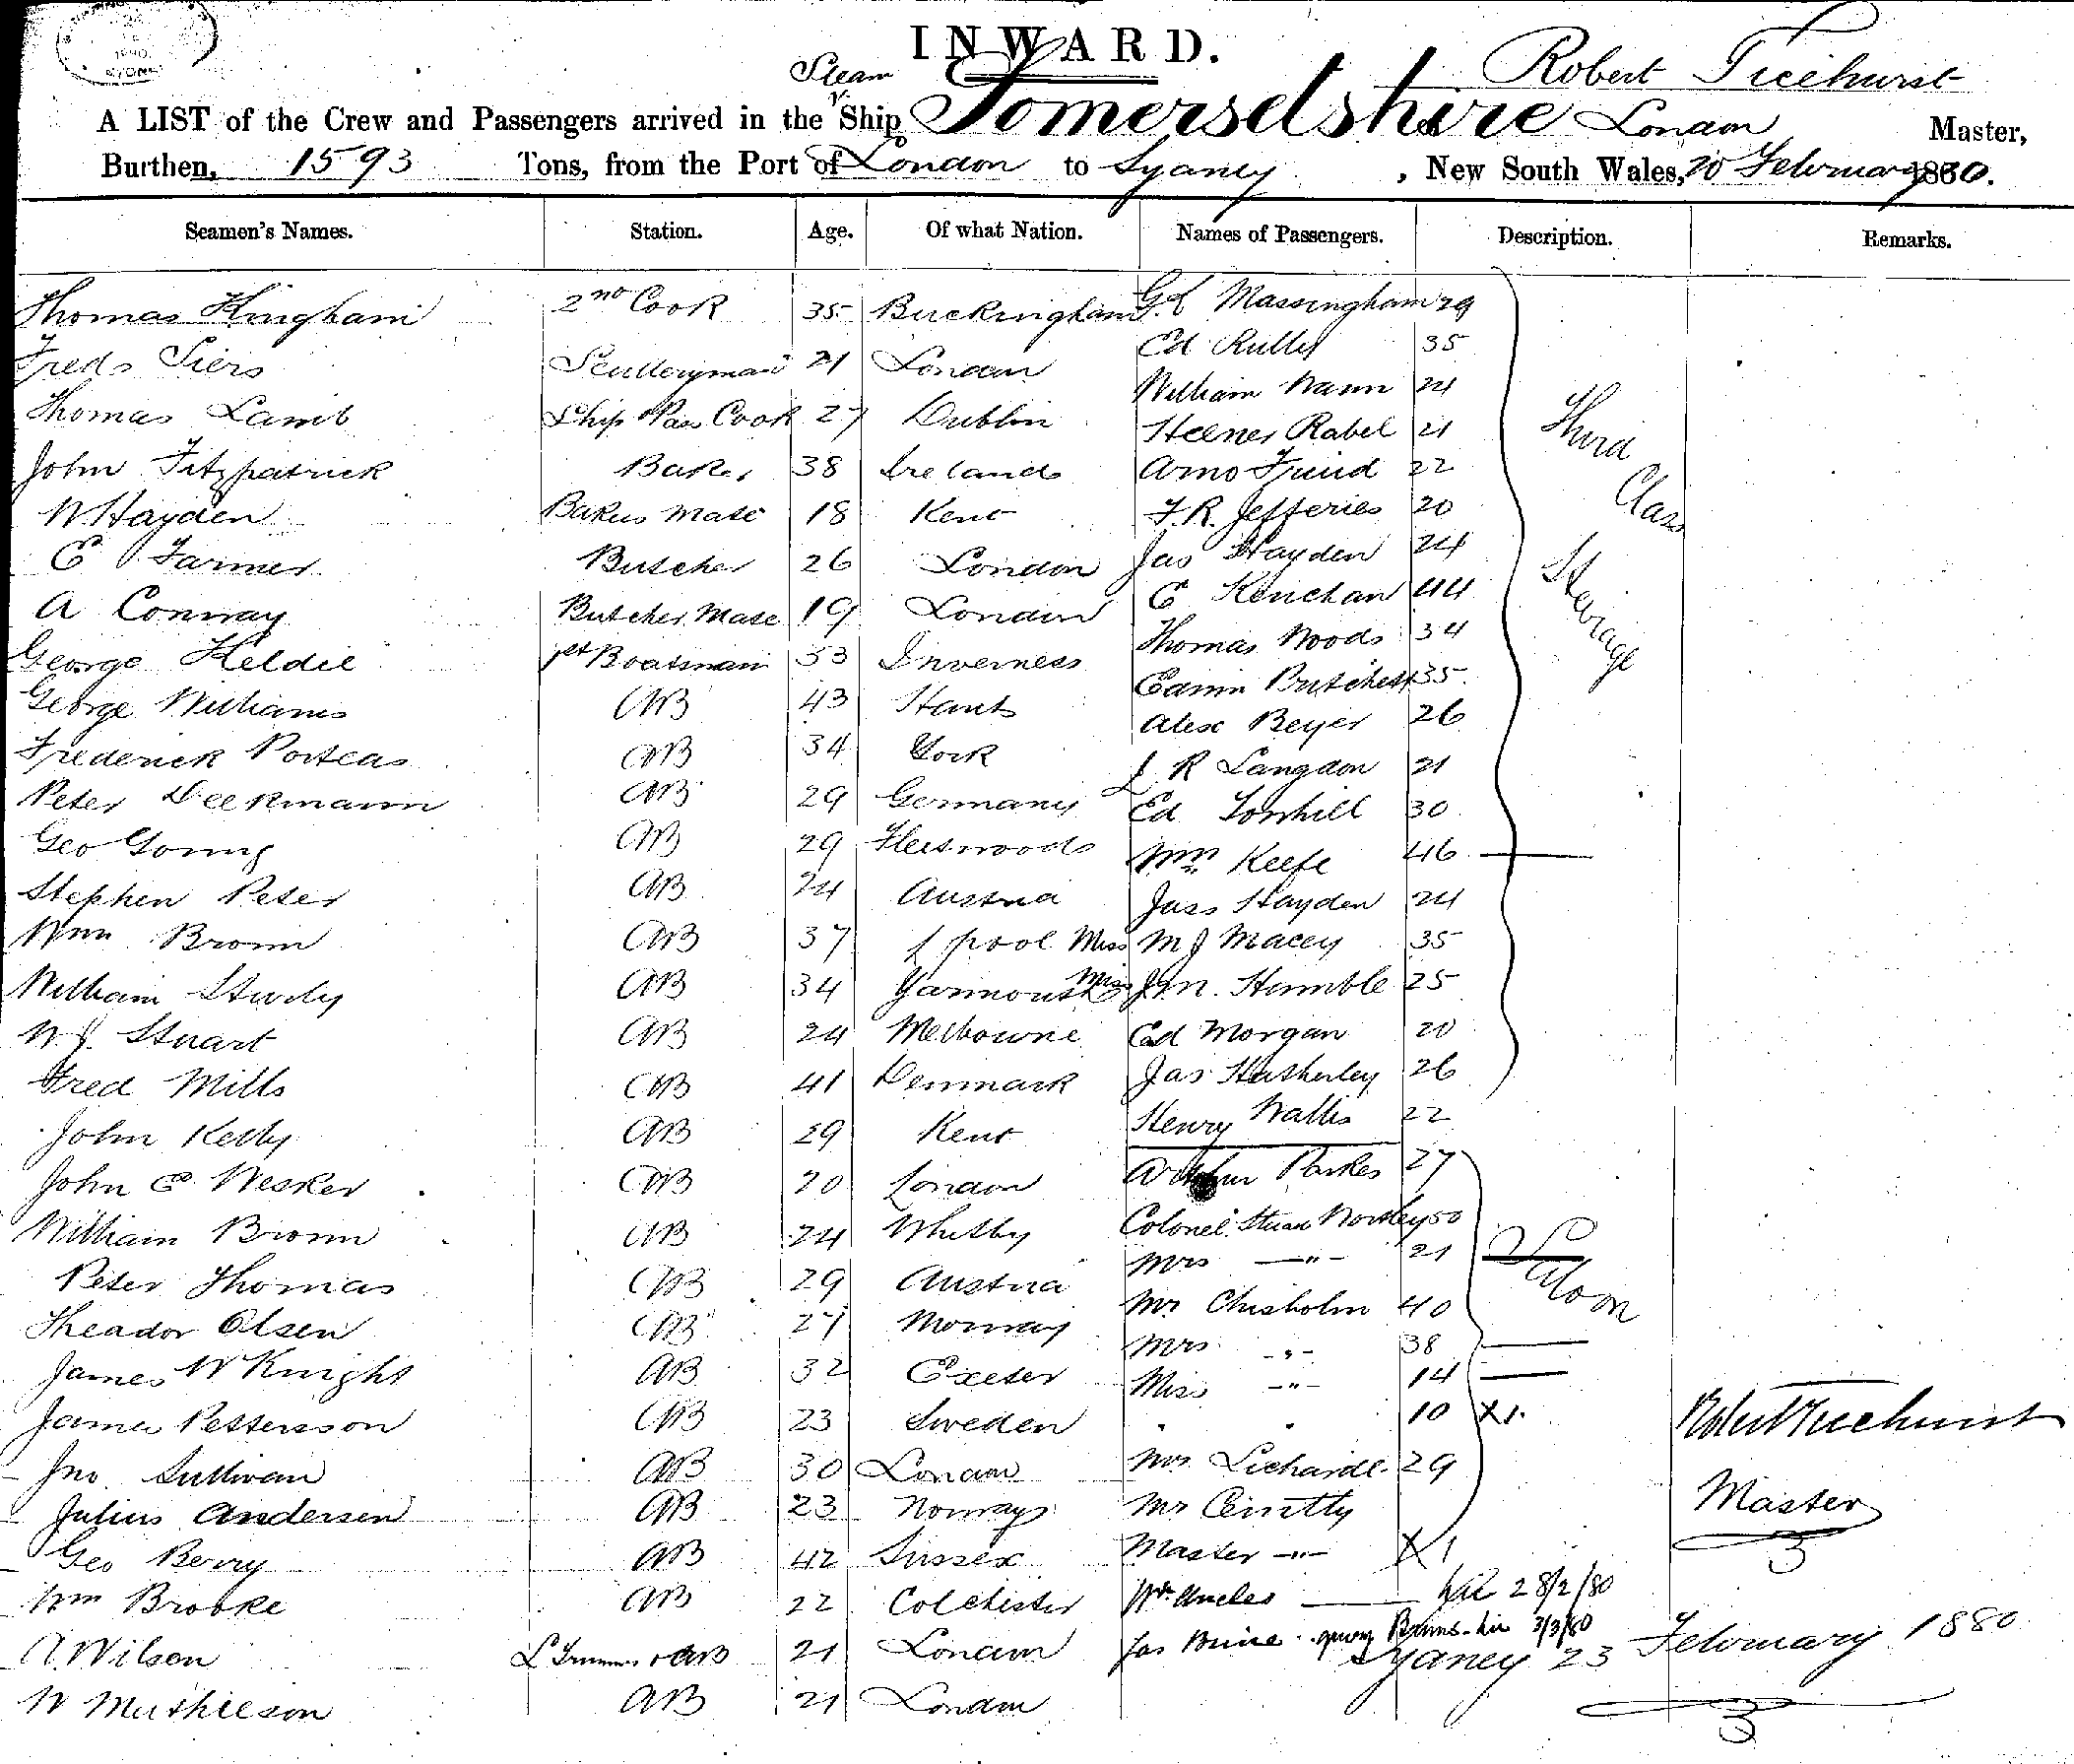 INWARD.
Steam
Robert Treehurst
A LIST of the Crew and Passengers arrived in the Ship Somersetshire London Master,
Burthen, 1593 Tons, from the Port of London to Sydney, New South Wales, 20 February 1880.
Seamen's Names. Station. Age. Of what Nation. Names of Passengers. Description. Remarks.
Thomas Kingham 2nd Cook 35 Buckingham Massingham 29
Fredk Siers Sculleryman 21 London Ed 35
Thomas Lamb Ship & Pass Cook 27 Dublin William Wann 24
John Fitzpatrick Baker 38 Ireland Rabel 21
W Hayden Bakers Mate 18 Kent Arno 22
E Farmer Butcher 26 London F.R. Jefferies 20
A Conway Butchers Mate 19 London Jas Hayden 24
George Keldie 1st Boatsman 33 Inverness E Kenchan 44
George Williams AB 43 Hants Thomas Woods 34
Frederick Porteas AB 34 York Edwin 35
Peter Deekmann AB 29 Germany Alex Beyer 26
Geo Young AB 29 Fleetwood J R Langdon 21
Stephen Peter AB 24 Austria Ed Tonhill 30
Wm Brown AB 37 L pool Wm Keefe 46
William Sturdy AB 34 Yarmouth Jass Hayden 24
W. J. Stuart AB 24 Melbourne Miss M J Macey 35
Fred Mills AB 41 Denmark Miss Humble 25
John Kelly AB 29 Kent Ed Morgan 20
John E Wesker AB 20 London Jas Hatherley 26
William Brown AB 24 Whitby Henry Wallis 22
Third Class Steerage
Peter Thomas AB 29 Austria Arthur Parkes 27
Theador Olsen AB 27 Norway Colonel Stuart Wortley 50
James W Knight AB 32 Exeter Mrs —"— 21
James Pettersson AB 23 Sweden Mr Chisholm 40
Jno. Sullivan AB 30 London Mrs —"— 38
Julius Andersen AB 23 Norway Miss —"— 14
Geo Berry AB 42 Sussex " " 10 X1.
Wm Brooke AB 22 Colchester Mrs 29
A. Wilson L Trimmer & AB 21 London Mr
W Mathieson AB 21 London Master —"— X1
Saloon
28/2/80
Jas 3/3/80
Robert Treehurst
Master
Sydney 23 February 1880